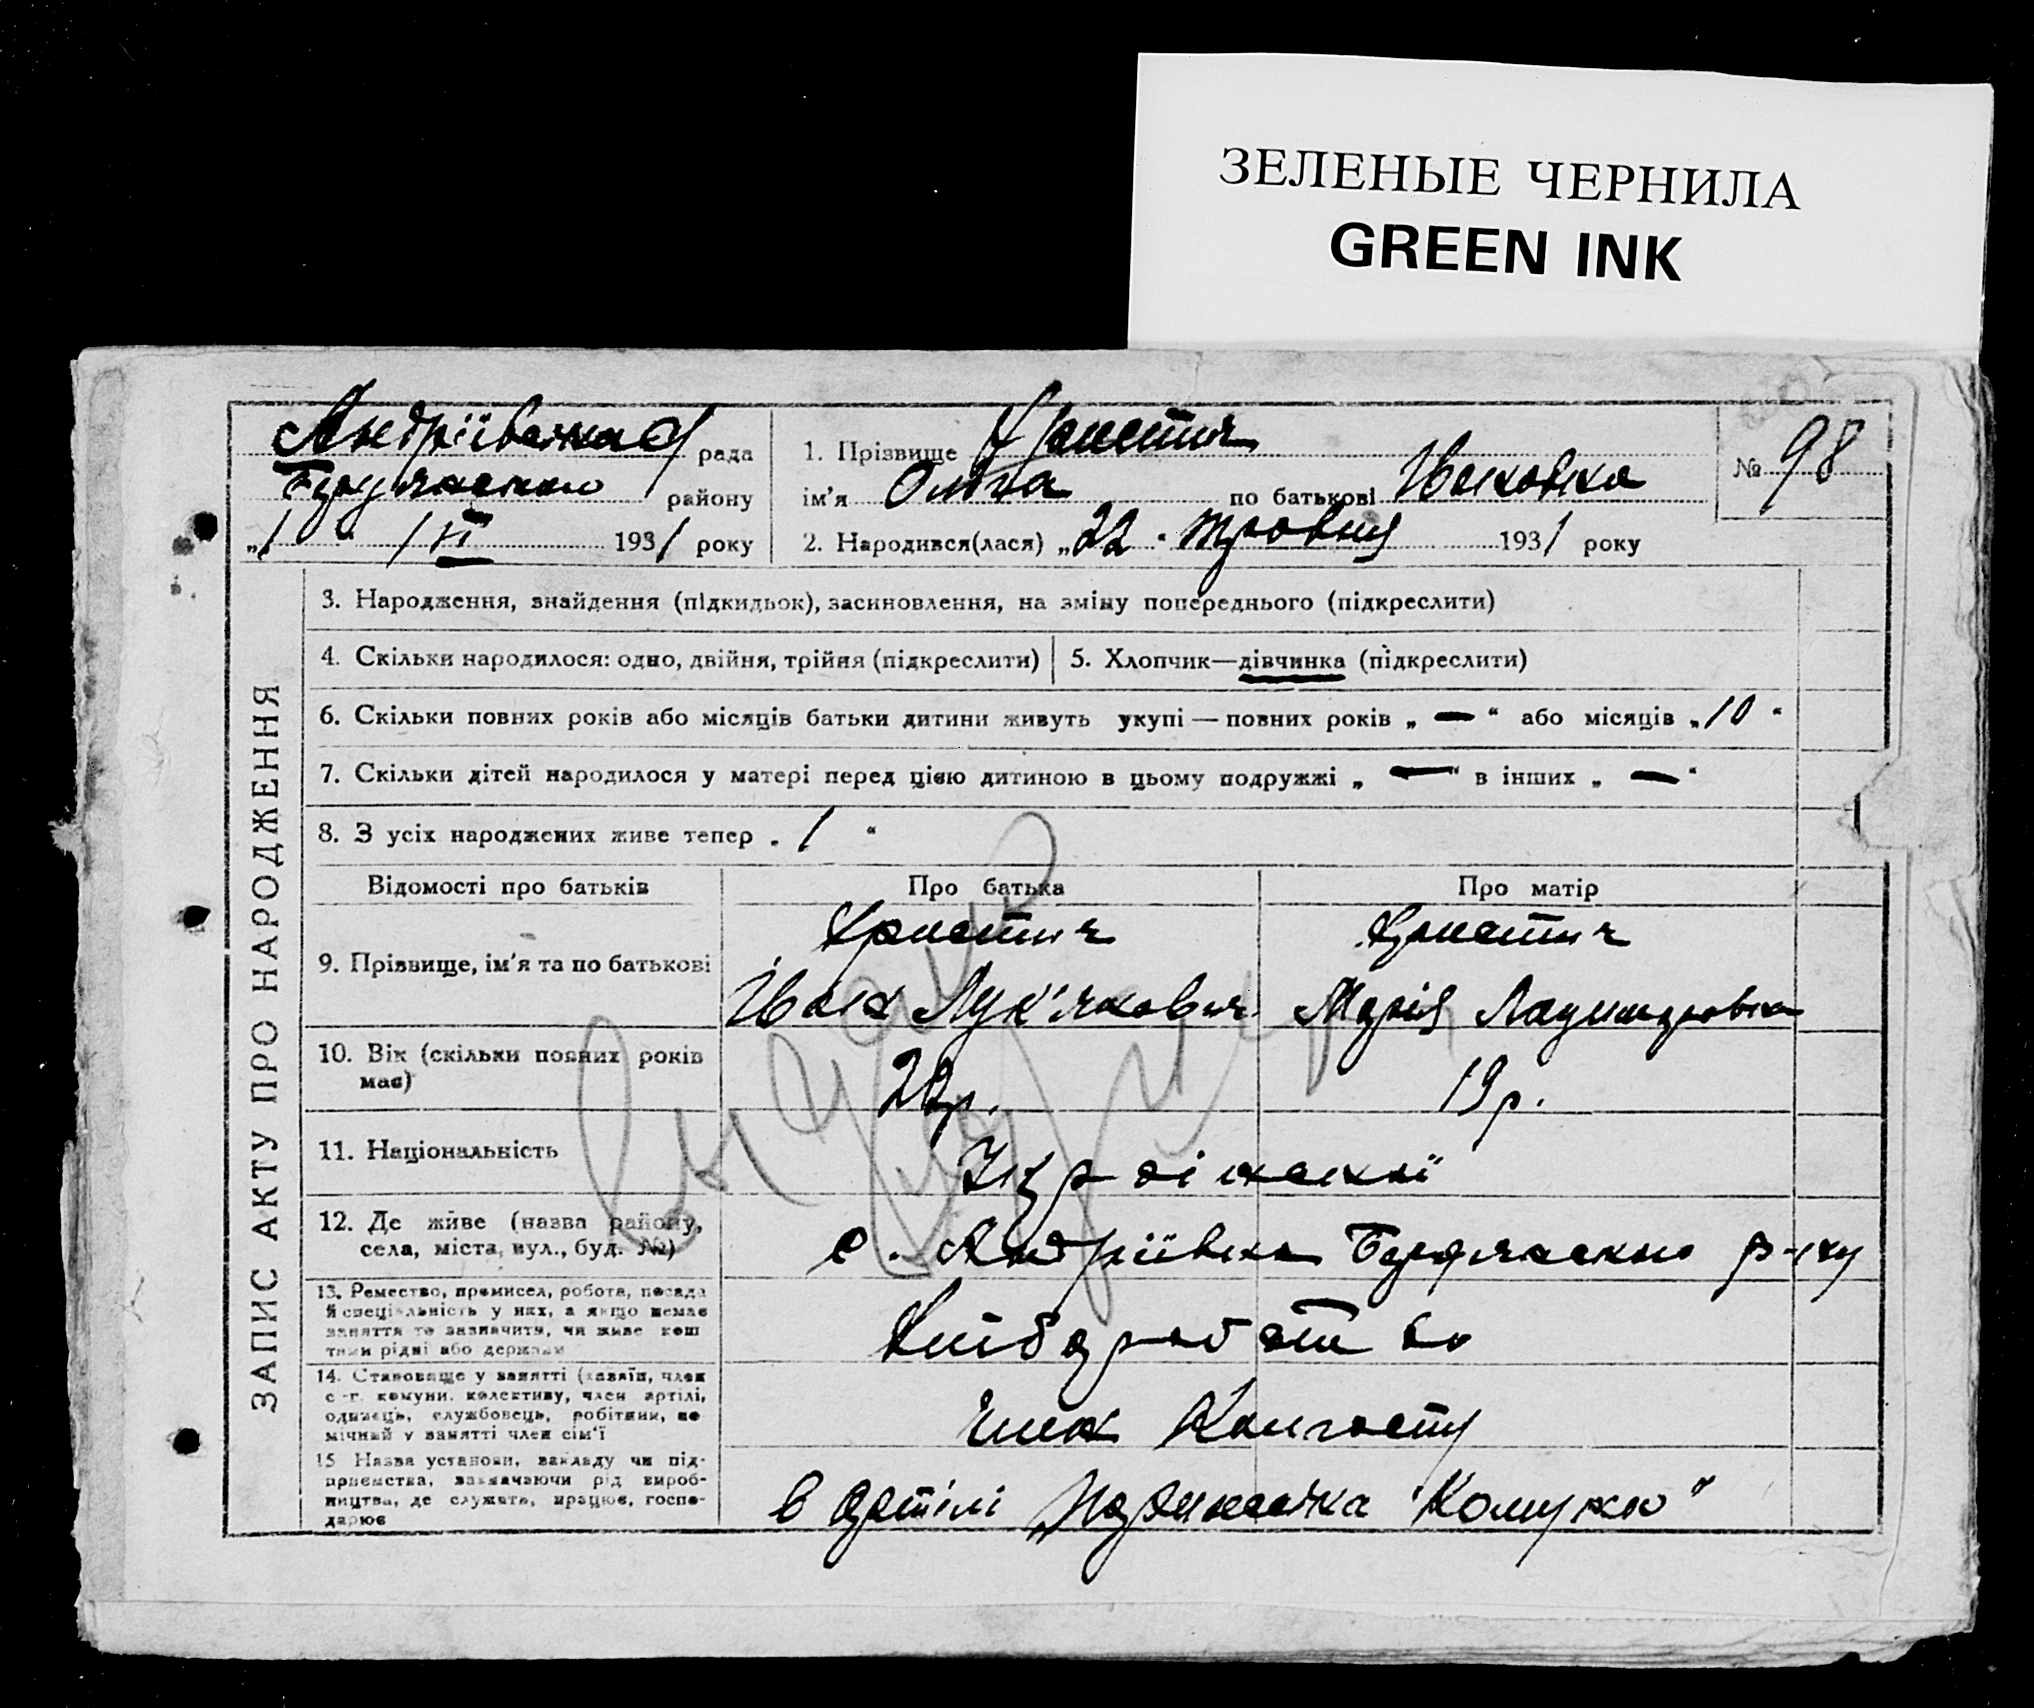 ЗЕЛЕНЫЕ ЧЕРНИЛА
GREEN INK
Андріївська рада
району
„1" /VI 1931 року
1. Прізвище Христич
ім'я Ольга по батькові Івановна
№ 98
2. Народився(лася) „22" травня 1931 року
ЗАПИС АКТУ ПРО НАРОДЖЕННЯ
3. Народження, знайдення (підкидьок), засиновлення, на зміну попереднього (підкреслити)
4. Скільки народилося: одно, двійня, трійня (підкреслити)
5. Хлопчик—дівчинка (підкреслити)
6. Скільки повних років або місяців батьки дитини живуть укупі — повних років „ — " або місяців „ 10 "
7. Скільки дітей народилося у матері перед цією дитиною в цьому подружжі „ — " в інших „ — "
8. З усіх народжених живе тепер „ 1 "
Відомості про батьків
Про батька
Про матір
9. Прізвище, ім'я та по батькові
Христич
Іван Лук'янович
Христич
Марія
10. Вік (скільки повних років має)
р.
19 р.
11. Національність
Українські
12. Де живе (назва району, села, міста, вул., буд. №)
с. Андріївка р-ну
13. Ремество, промисел, робота, посада й спеціяльність у них, а якщо немає заняття то зазначити, чи живе коштами рідні або держави
Хліборобство
14. Становище у занятті (хазяїн, член с.-г. комуни, колективу, член артілі, одинець, службовець, робітник, помічний у занятті член сім'ї
член Колгоспу
15 Назва установи, закладу чи підприємства, зазначаючи рід виробництва, де служить, працює, господарює
в артілі „Паризська Комуна"